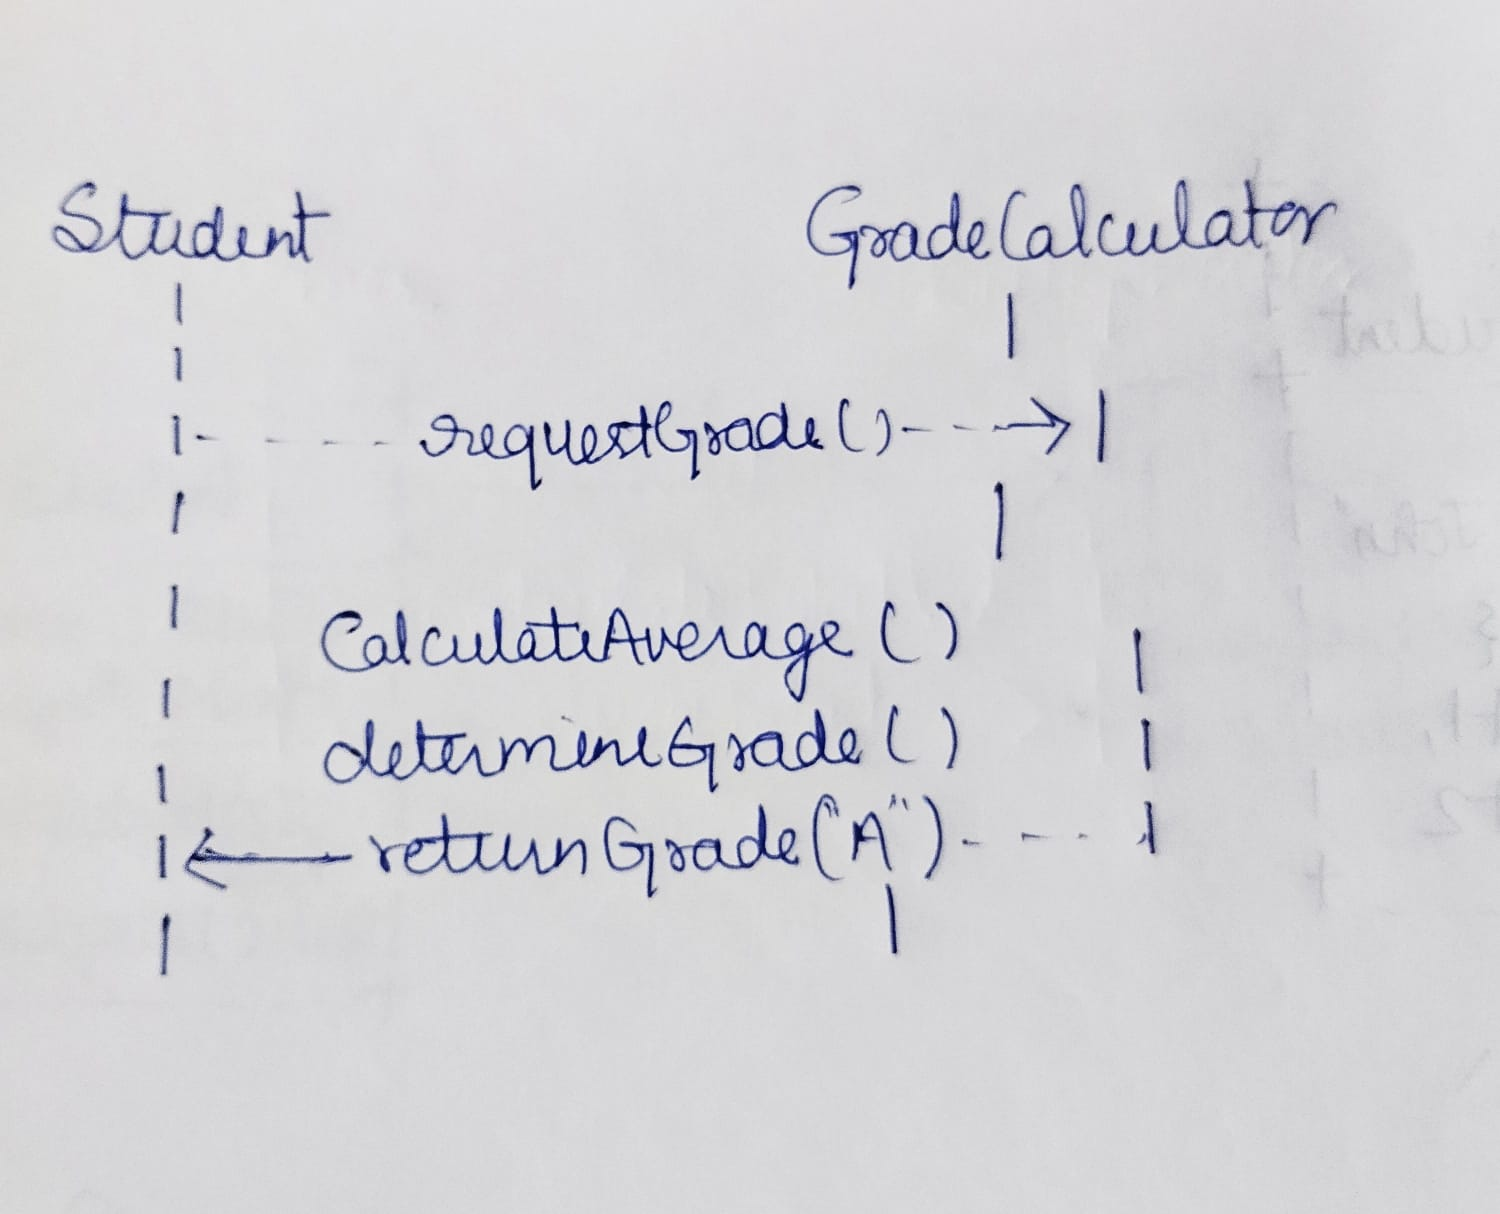 Student GradeCalculator
requestGrade()
CalculateAverage()
determineGrade()
returnGrade("A")